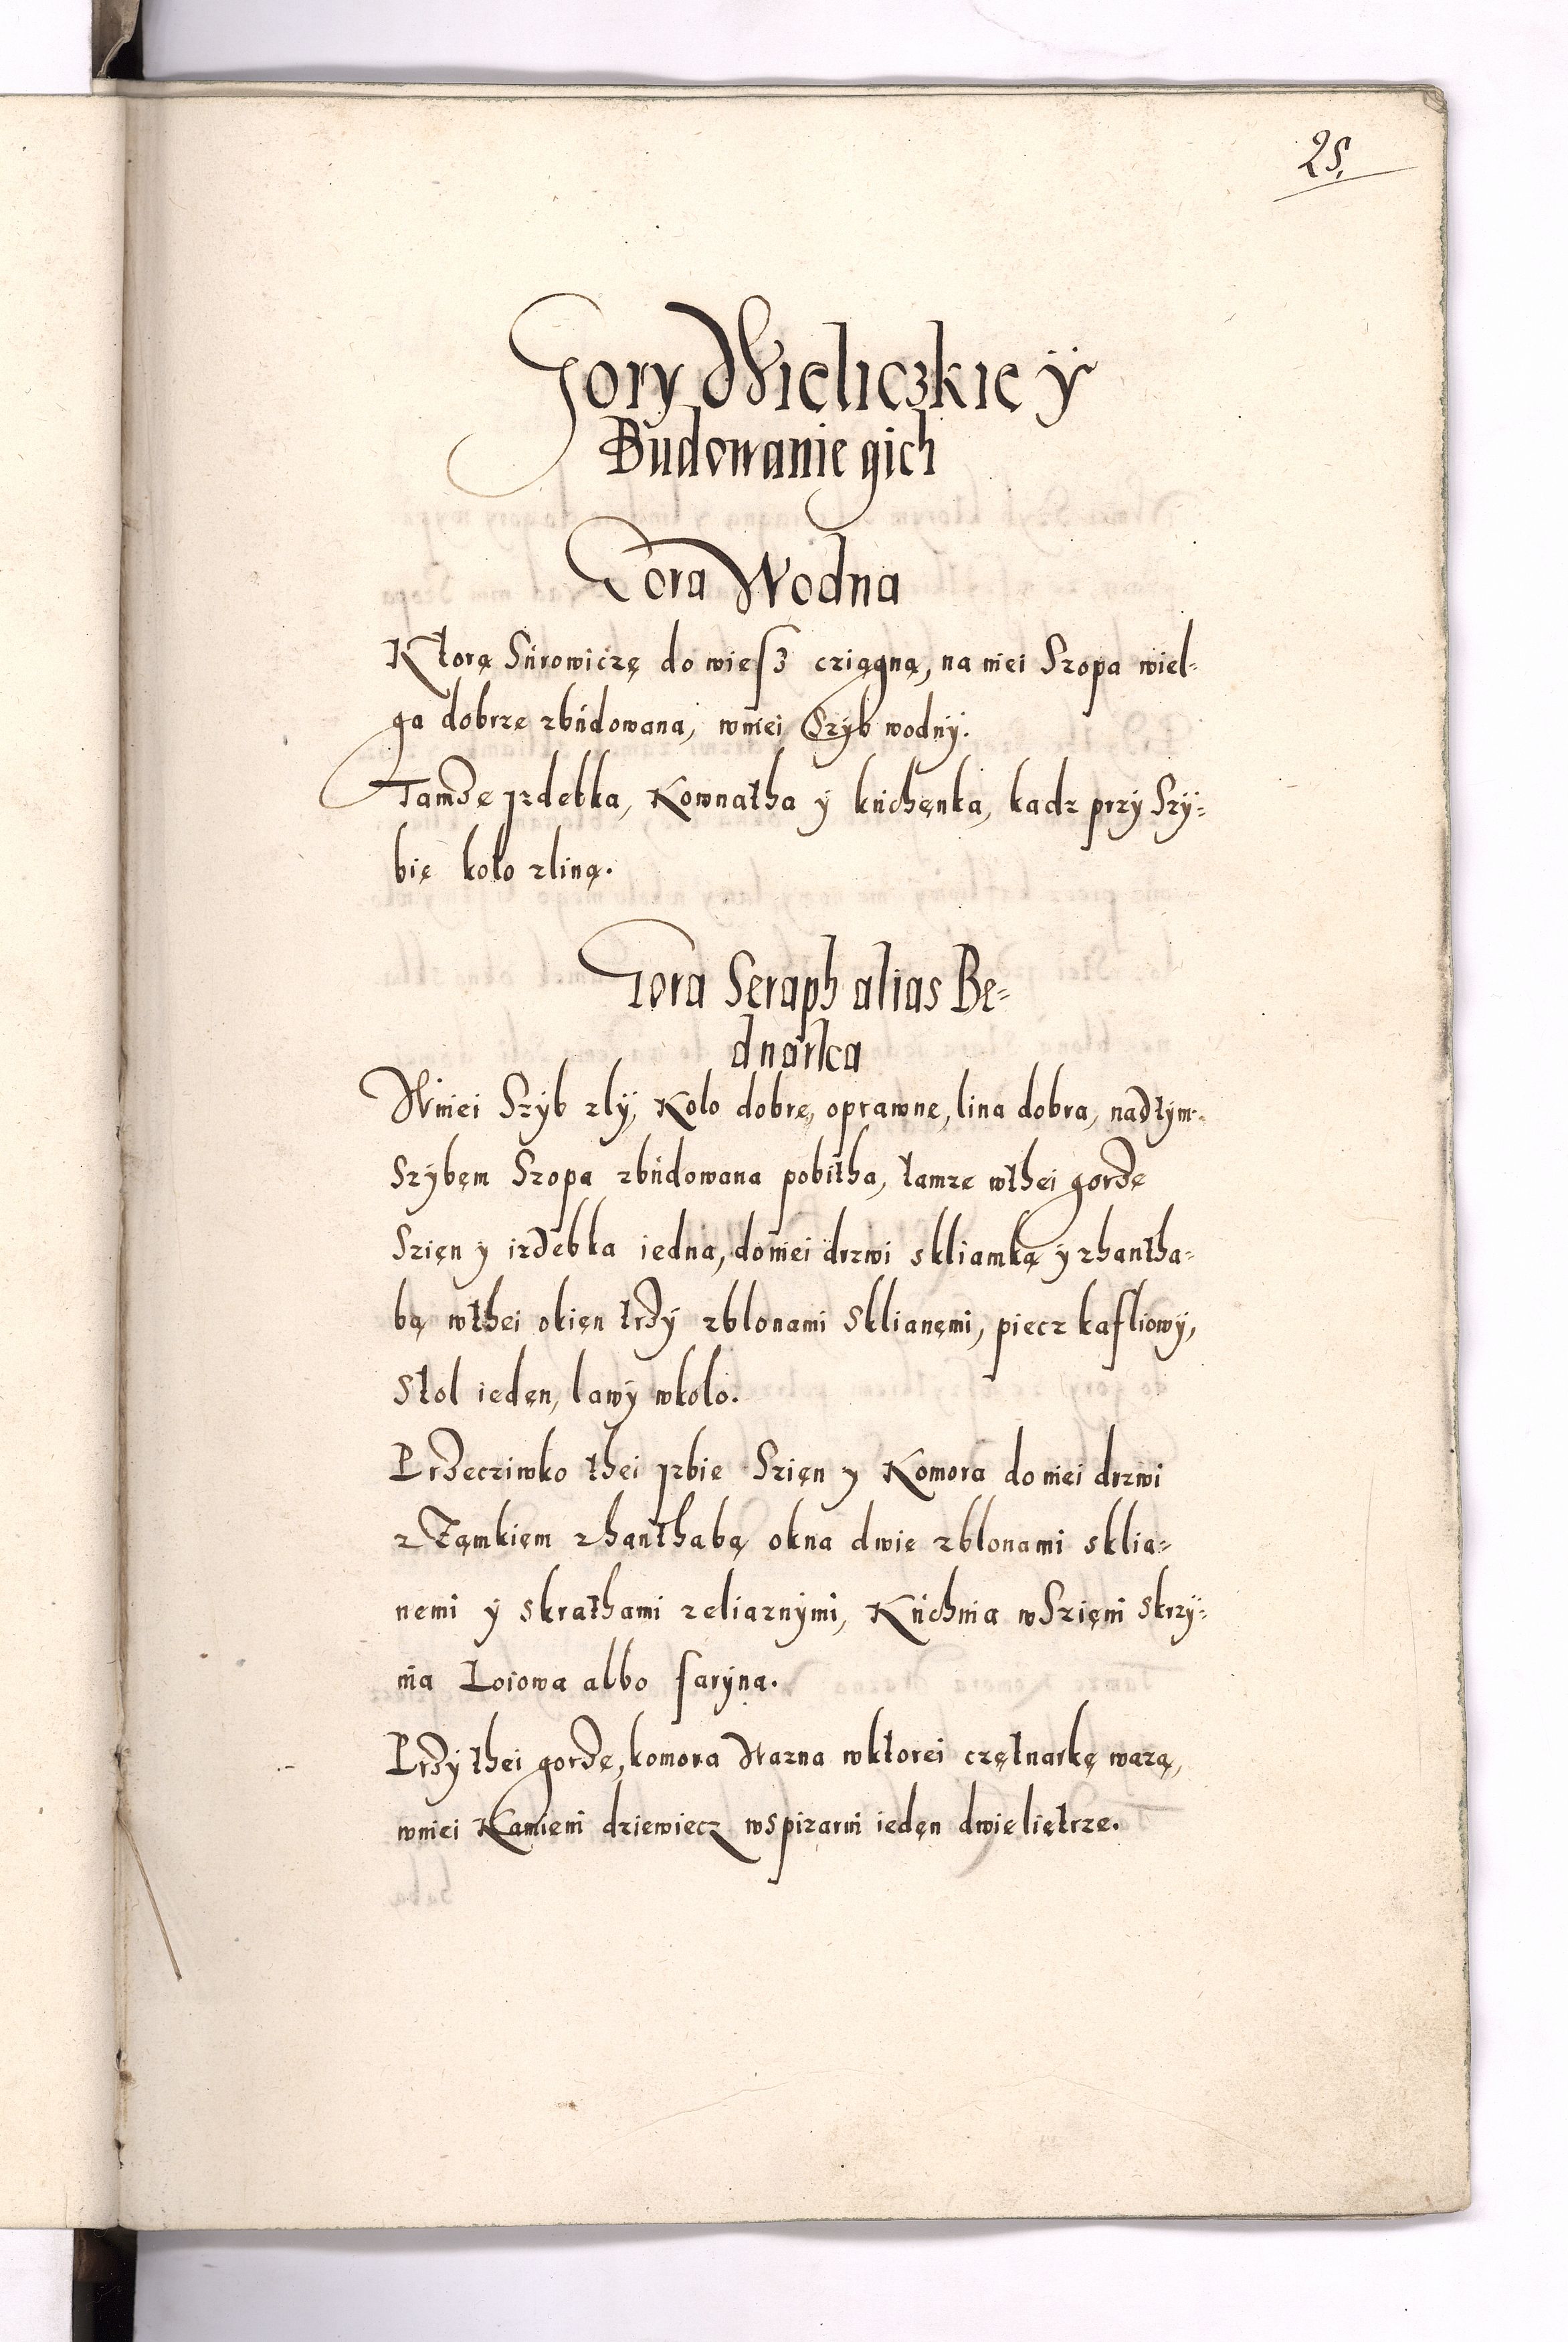 25.
Gory Wieliczkie ÿ
Budowanie gich
Gora Wodna
Ktorą Surowiczę do wiesz cziągną, na niei Szopa wiel-
ga dobrze zbudowana, wniei Szyb wodnÿ.
Tamże jzdebka, Kownatha ÿ kuchęnka, kadz przÿ Szÿ-
bię koło zliną.
Gora Seraph alias Be-
dnarka
Wniei Szÿb złÿ, Koło dobrę, oprawne, lina dobra, nadtÿm
Szÿbęm Szopa zbudowana pobitha, tamze wthei gorżę
Szięn ÿ izdebka iedna, doniei drzwi skliamką ÿ zhantha-
bą wthei okięn trzÿ zblonami Sklianęmi, piecz kafliowÿ,
Stol iedęn, lawÿ wkolo.
Przecziwko thei jzbie Szięn y Komora do niei drzwi
z Zamkięm zhanthabą okna dwie zblonami sklia-
nemi ÿ skrathami zeliaznÿmi, Kuchnia wSzięni Skrzÿ-
nia Łoiowa albo farÿna.
Przÿ thei gorżę, komora Wazna wktorei czętnarkę wazą,
wniei Kamieni dziewiecz wspizarni iedęn dwieliętrze.